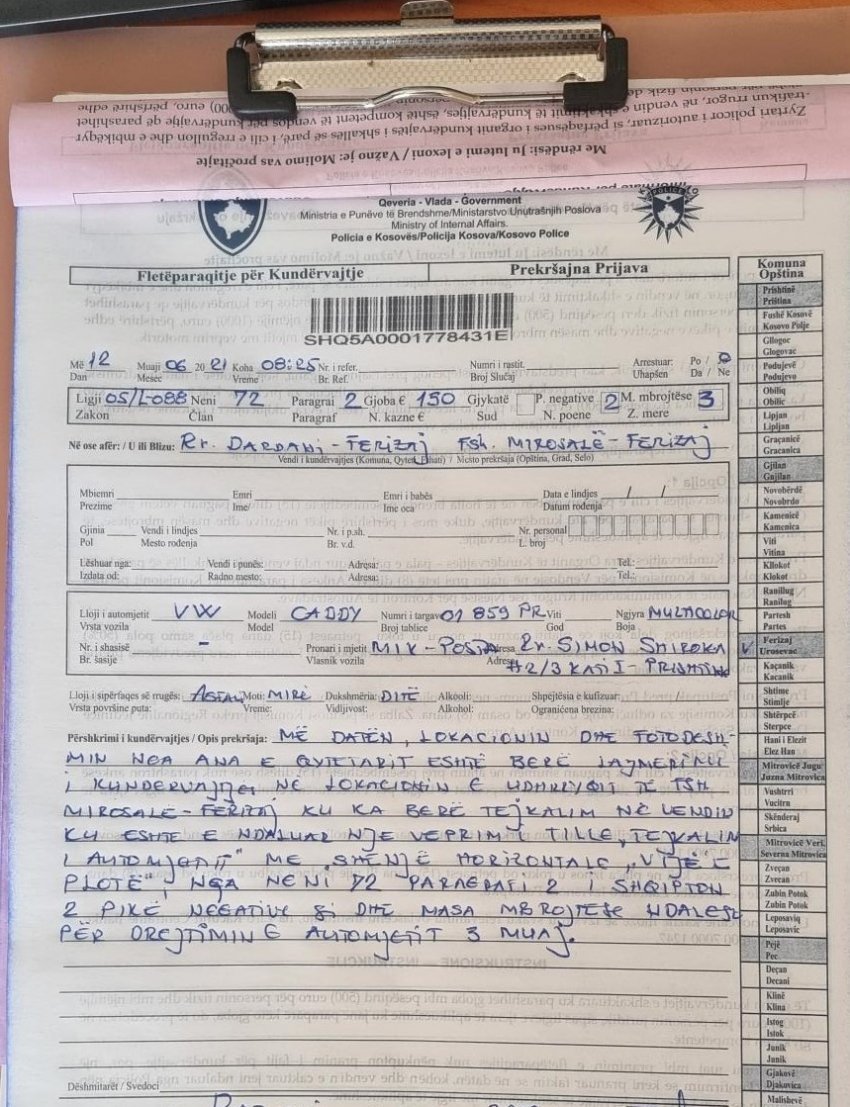 Me rëndësi: Ju lutemi e lexoni / Važno je: Molimo vas pročitajte
Qeveria - Vlada - Government
Ministria e Punëve të Brendshme/Ministarstvo Unutrašnjih Poslova
Ministry of Internal Affairs.
Policia e Kosovës/Policija Kosova/Kosovo Police
POLICE
Fletëparaqitje për Kundërvajtje Prekršajna Prijava
SHQ5A0001778431E
Më 12 Muaji 06 2021 Koha 08:25 Nr. i refer. Numri i rastit. Arrestuar: Po / Jo
Dan Mesec Vreme Br. Ref. Broj Slučaj Uhapšen Da / Ne
Ligji 05/L-088 Neni 72 Paragrai 2 Gjoba € 150 Gjykatë P. negative 2 M. mbrojtëse 3
Zakon Član Paragraf N. kazne € Sud N. poene Z. mere
Në ose afër: / U ili Blizu: Rr. DARDANI - FERIZAJ FSH. MIROSALË - FERIZAJ
Vendi i kundërvajtjes (Komuna, Qyteti, Fshati) / Mesto prekršaja (Opština, Grad, Selo)
Mbiemri Emri Emri i babës Data e lindjes / /
Prezime Ime/ Ime oca Datum rođenja
Gjinia Vendi i lindjes Nr. i p.sh. Nr. personal
Pol Mesto rođenja Br. v.d. L. broj
Lëshuar nga: Vendi i punës: Adresa: Tel.:
Izdata od: Radno mesto: Adresa: Tel.:
Lloji i automjetit VW Modeli CADDY Numri i targave 01 859 PR Viti Ngjyra MULTICOLOR
Vrsta vozila Model Broj tablice God Boja
Nr. i shasisë - Pronari i mjetit MIK - POSTA Adresa Rr. SIMON SHIROKA
Br. šasije Vlasnik vozila Adresa #2/3 KATI I - PRISHTINË
Lloji i sipërfaqes së rrugës: ASFALT Moti: MIRË Dukshmëria: DITË Alkooli: Shpejtësia e kufizuar:
Vrsta površine puta: Vreme: Vidljivost: Alkohol: Ograničena brezina:
Përshkrimi i kundërvajtjes / Opis prekršaja: MË DATËN, LOKACIONIN DHE FOTODESH-
MIN NGA ANA E QYTETARIT ESHTË BERË LAJMERIMI
I KUNDERVAJTJES NË LOKACIONIN E UDHRYQIT TË FSH.
MIROSALË - FERIZAJ KU KA BERË TEJKALIM NË VENDIN
KU ESHTË E NDALUAR NJE VEPRIM I TILLE, TEJKALIM
I AUTOMJETIT" ME SHENJË HORIZONTALE „VIJË E
PLOTË", NGA NENI 72 PARAGRAFI 2 I SHQIPTOH
2 PIKË NEGATIVE SI DHE MASA MBROJTESE NDALESË
PËR DREJTIMIN E AUTOMJETIT 3 MUAJ.
Dëshmitarët / Svedoci
Komuna
Opština
Prishtinë
Priština
Fushë Kosovë
Kosovo Polje
Gllogoc
Glogovac
Podujevë
Podujevo
Obiliq
Obilic
Lipjan
Lipljan
Graçanicë
Gracanica
Gjilan
Gnjilan
Novobërdë
Novobrdo
Kamenicë
Kamenica
Viti
Vitina
Kllokot
Klokot
Ranillug
Ranilug
Partesh
Partes
Ferizaj V
Urosevac
Kaçanik
Kacanik
Shtime
Stimlje
Shtërpcë
Sterpce
Hani i Elezit
Elez Han
Mitrovicë Jugu
Juzna Mitrovica
Vushtrri
Vucitrn
Skënderaj
Srbica
Mitrovicë Veri.
Severna Mitrovica
Zveçan
Zvecan
Zubin Potok
Zubin Potok
Leposaviq
Leposavic
Pejë
Pec
Deçan
Decani
Klinë
Klina
Istog
Istok
Junik
Junik
Gjakovë
Djakovica
Malishevë